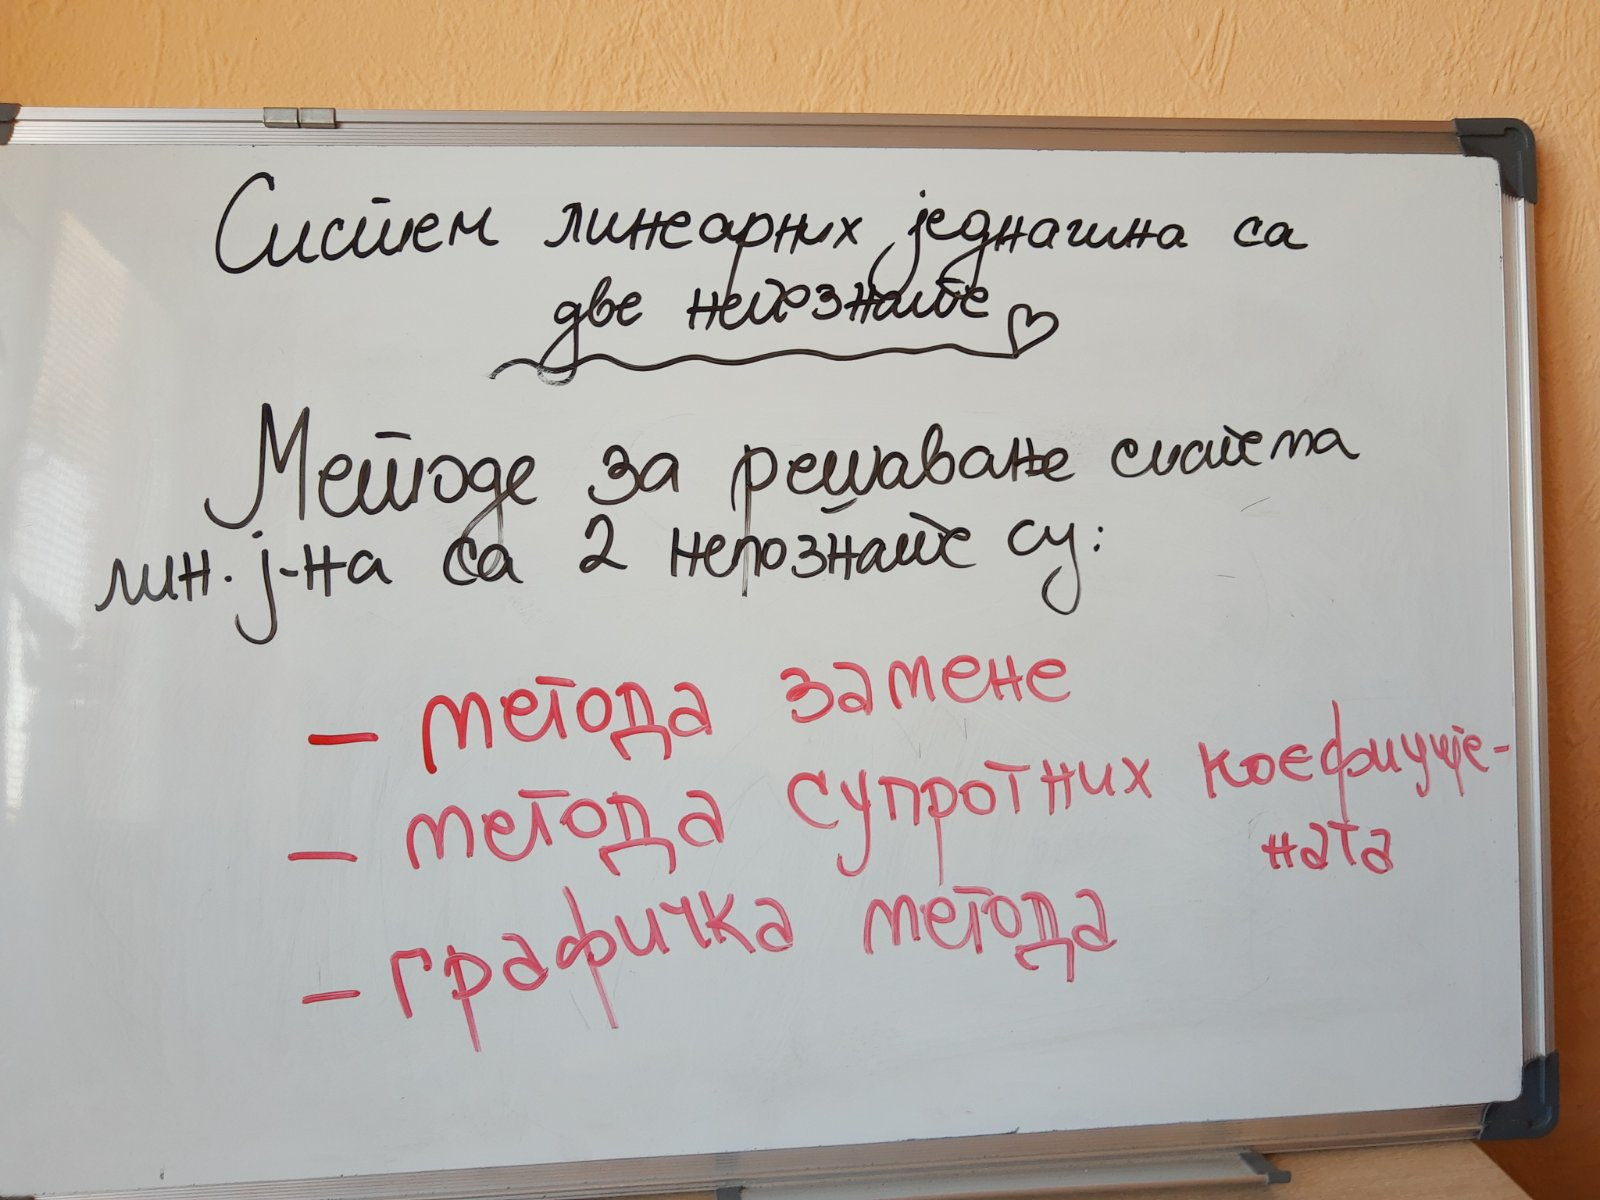 Систем линеарних једначина са
две непознате
Методе за решавање система
лин. ј-на са 2 непознате су:
- метода замене
- метода супротних коефицује-
ната
- графичка метода